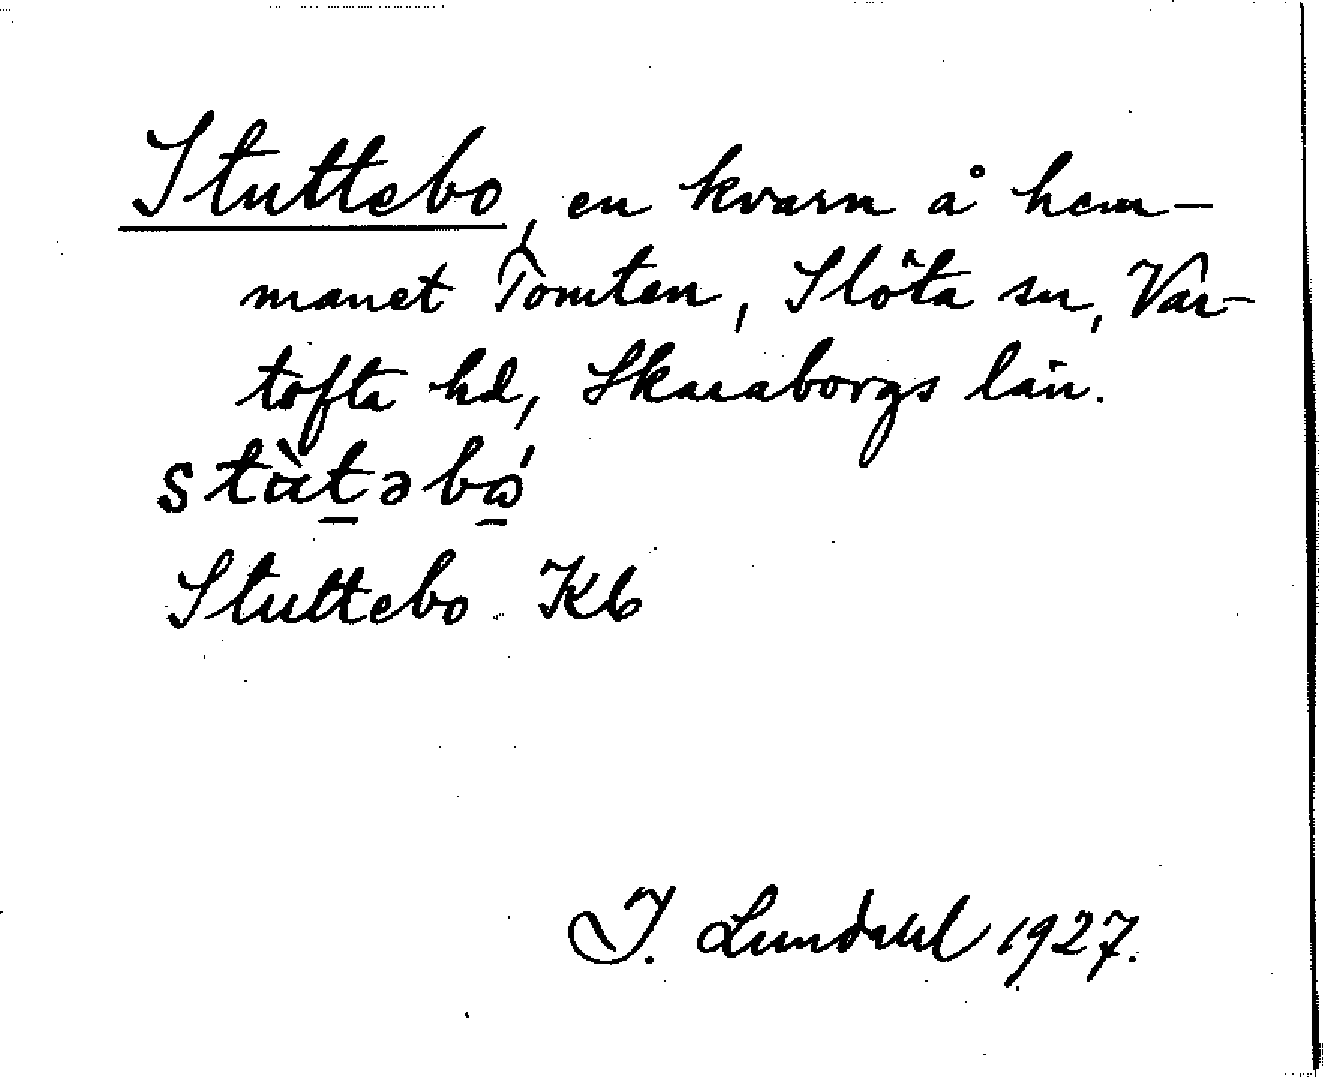 Stuttebo, en kvarn å hem-
manet Tomten, Slöta sn, Var-
tofta hd, Skaraborgs län.
stùt̲əbo̲´
Stuttebo Kb
I. Lundahl 1927.